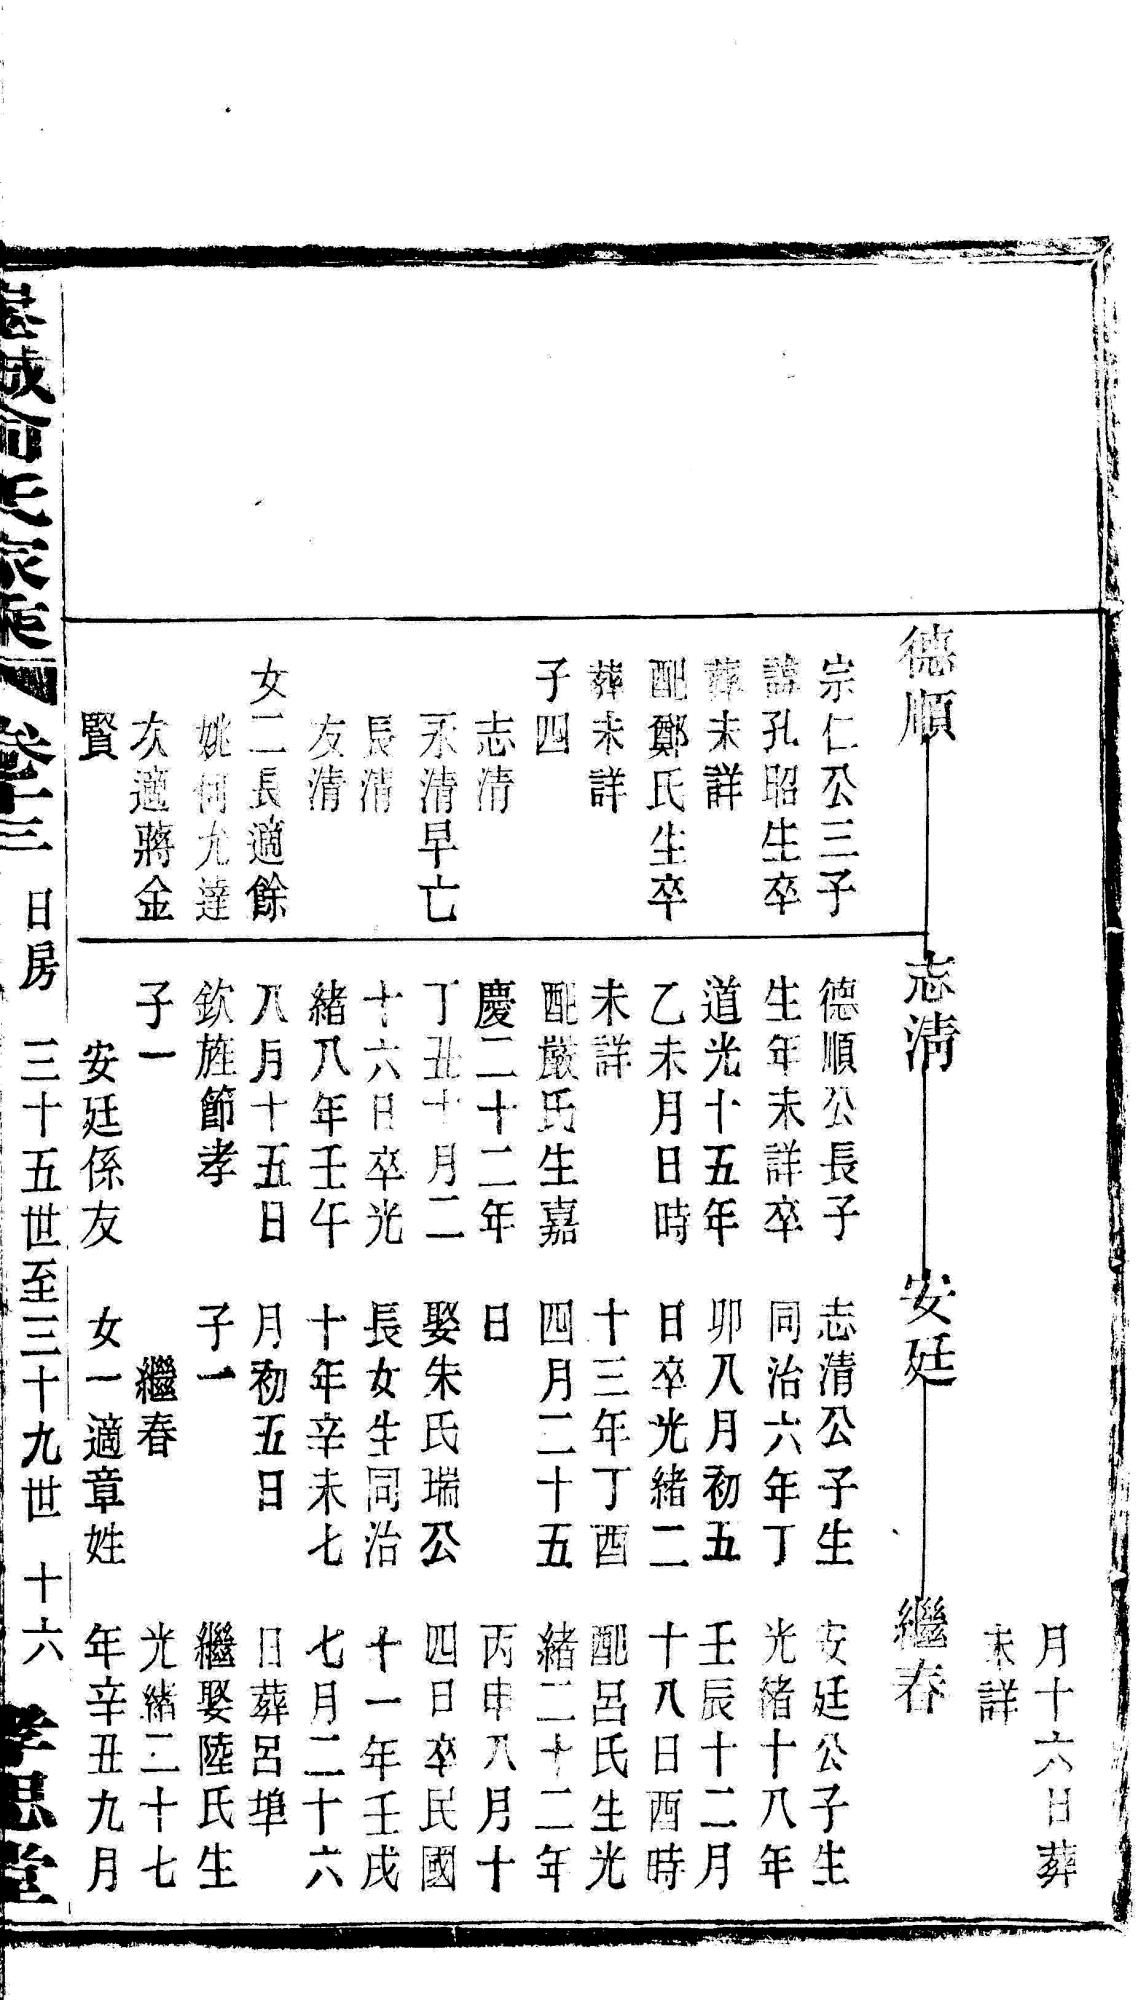 月十六日葬
未詳
德順
宗仁公三子
諱孔昭生卒
葬未詳
配鄭氏生卒
葬未詳
子四
志清
永清早亡
辰清
友清
女二長適餘
姚何允達
次適蔣金
賢
志清
德順公長子
生年未詳卒
道光十五年
乙未月日時
未詳
配嚴氏生嘉
慶二十二年
丁丑十月二
十六日卒光
緒八年壬午
八月十五日
欽旌節孝
子一
安廷係友
安廷
志清公子生
同治六年丁
卯八月初五
日卒光緒二
十三年丁酉
四月二十五
日
娶朱氏瑞公
長女生同治
十年辛未七
月初五日
子一
繼春
女一適章姓
繼春
安廷公子生
光緒十八年
壬辰十二月
十八日酉時
配呂氏生光
緒二十二年
丙申八月十
四日卒民國
十一年壬戌
七月二十六
日葬呂埠
繼娶陸氏生
光緒二十七
年辛丑九月
城俞氏家乘 卷十三 日房 三十五世至三十九世 十六 孝思堂